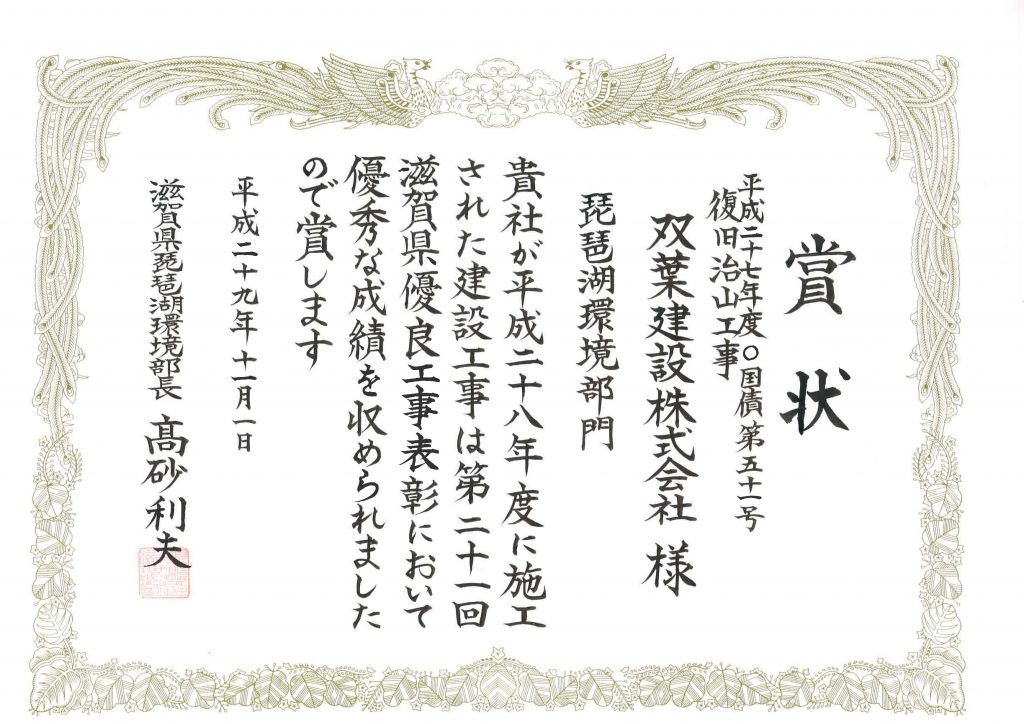 賞状
平成二十七年度〇国債第五十一号
復旧治山工事
双葉建設株式会社 様
琵琶湖環境部門
貴社が平成二十八年度に施工
された建設工事は第二十一回
滋賀県優良工事表彰において
優秀な成績を収められました
ので賞します
平成二十九年十一月一日
滋賀県琵琶湖環境部長 髙砂利夫